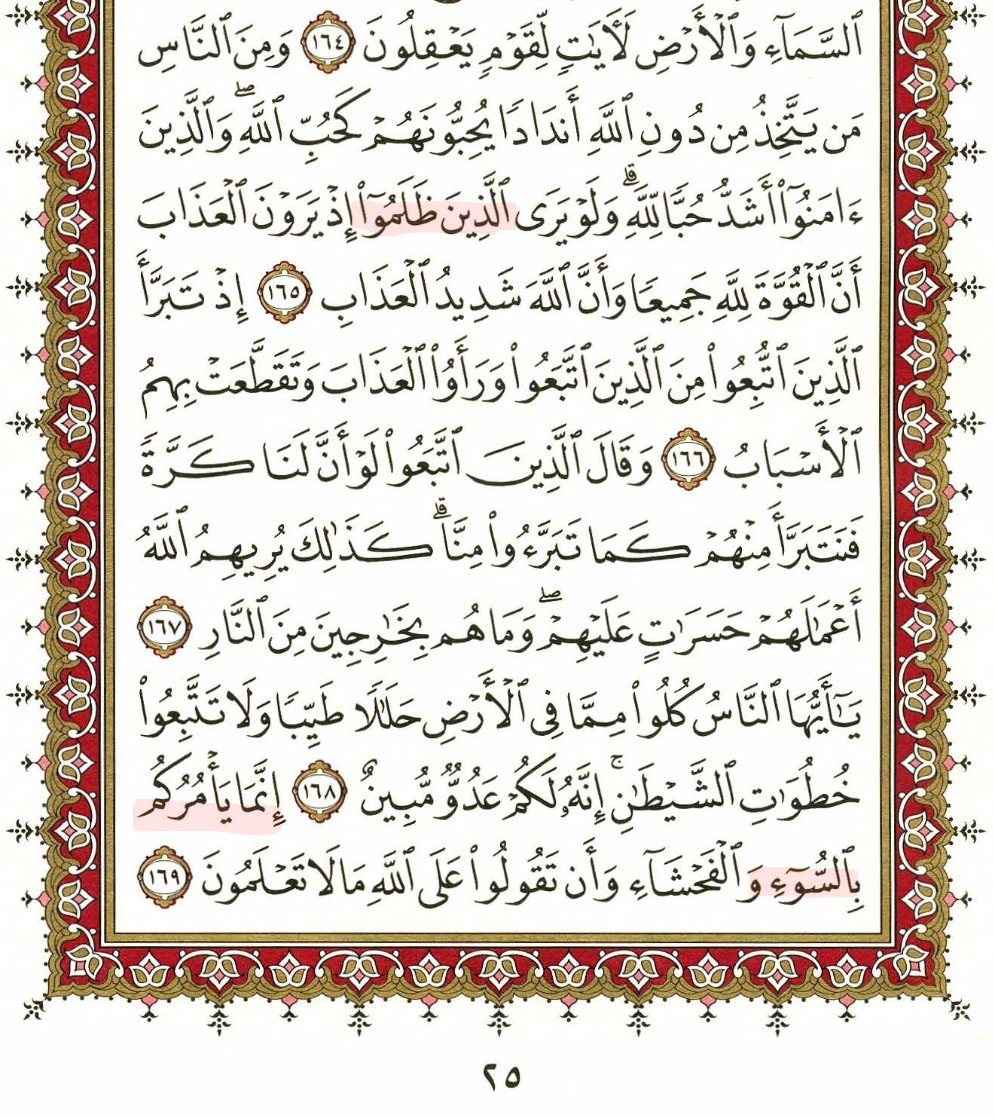 ٱلسَّمَآءِ وَٱلۡأَرۡضِ لَأٓيَٰتٖ لِّقَوۡمٖ يَعۡقِلُونَ ١٦٤ وَمِنَ ٱلنَّاسِ
مَن يَتَّخِذُ مِن دُونِ ٱللَّهِ أَندَادٗا يُحِبُّونَهُمۡ كَحُبِّ ٱللَّهِۖ وَٱلَّذِينَ
ءَامَنُوٓاْ أَشَدُّ حُبّٗا لِّلَّهِۗ وَلَوۡ يَرَى ٱلَّذِينَ ظَلَمُوٓاْ إِذۡ يَرَوۡنَ ٱلۡعَذَابَ
أَنَّ ٱلۡقُوَّةَ لِلَّهِ جَمِيعٗا وَأَنَّ ٱللَّهَ شَدِيدُ ٱلۡعَذَابِ ١٦٥ إِذۡ تَبَرَّأَ
ٱلَّذِينَ ٱتُّبِعُواْ مِنَ ٱلَّذِينَ ٱتَّبَعُواْ وَرَأَوُاْ ٱلۡعَذَابَ وَتَقَطَّعَتۡ بِهِمُ
ٱلۡأَسۡبَابُ ١٦٦ وَقَالَ ٱلَّذِينَ ٱتَّبَعُواْ لَوۡ أَنَّ لَنَا كَرَّةٗ
فَنَتَبَرَّأَ مِنۡهُمۡ كَمَا تَبَرَّءُواْ مِنَّاۗ كَذَٰلِكَ يُرِيهِمُ ٱللَّهُ
أَعۡمَٰلَهُمۡ حَسَرَٰتٍ عَلَيۡهِمۡۖ وَمَا هُم بِخَٰرِجِينَ مِنَ ٱلنَّارِ ١٦٧
يَٰٓأَيُّهَا ٱلنَّاسُ كُلُواْ مِمَّا فِي ٱلۡأَرۡضِ حَلَٰلٗا طَيِّبٗا وَلَا تَتَّبِعُواْ
خُطُوَٰتِ ٱلشَّيۡطَٰنِۚ إِنَّهُۥ لَكُمۡ عَدُوّٞ مُّبِينٌ ١٦٨ إِنَّمَا يَأۡمُرُكُم
بِٱلسُّوٓءِ وَٱلۡفَحۡشَآءِ وَأَن تَقُولُواْ عَلَى ٱللَّهِ مَا لَا تَعۡلَمُونَ ١٦٩
٢٥